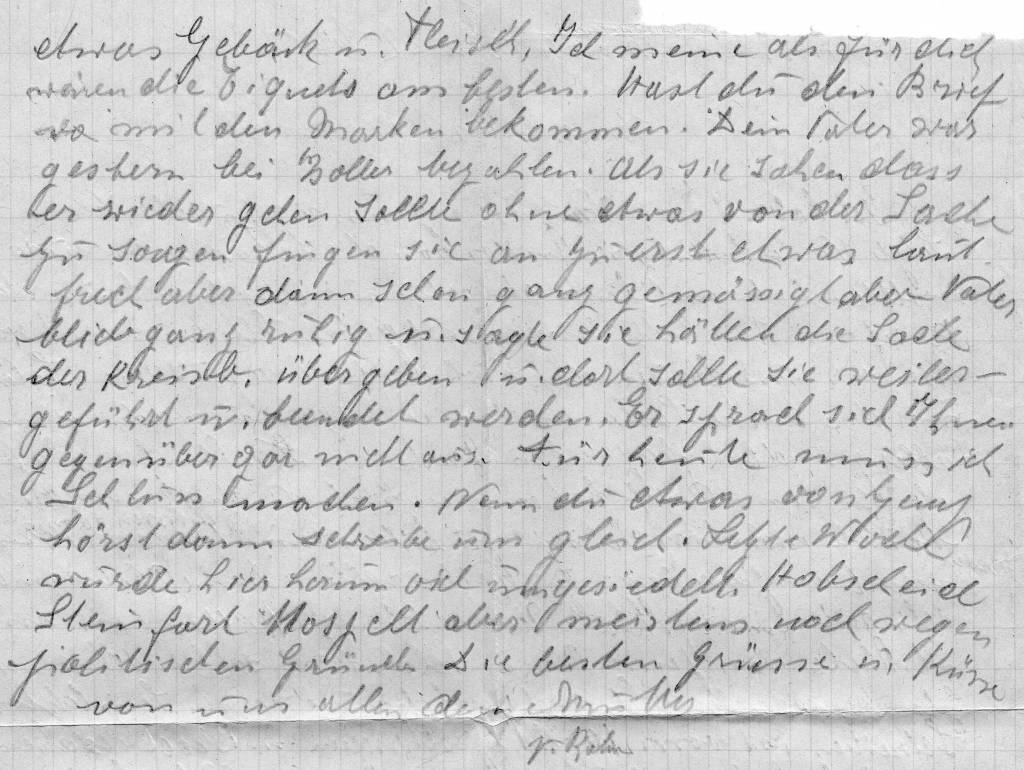 etwas Gebäck u. Fleisch, Ich meine als für dich
wären die Ziguets am besten. Hast du den Brief
wo mit den Marken bekommen. Dein Vater war
gestern bei Boller bezahlen. Als sie sahen dass
er wieder gehen sollte ohne etwas von der Sache
zu sagen fingen sie an zuerst etwas laut
frech aber dann schon ganz gemässigt aber Vater
blieb ganz ruhig u. sagte sie hätten die Sache
der Kreisb. übergeben u. dort sollte sie weiter-
geführt u. beendet werden. Er sprach sich Ihnen
gegenüber gar nicht aus. Für heute muss ich
Schluss machen. Wenn du etwas von
hörst dann schreibe uns gleich. Letzte Woche
wurde hier herum viel umgesiedelt. Hobscheid
Steinfort Hospelt aber meistens noch wegen
politischen Gründen Die besten Grüsse u. Küsse
von uns allen deine Mutter